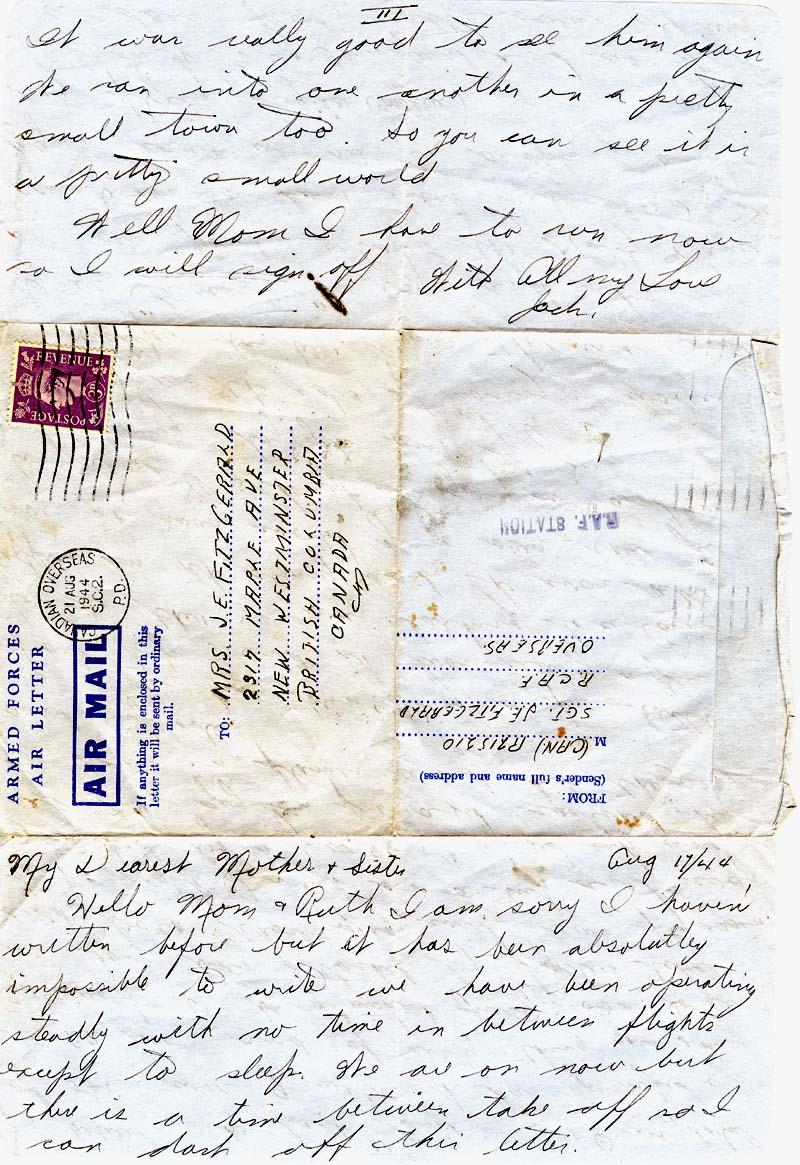 III
It was really good to see him again
We ran into one another in a pretty
small town too. So you can see it is
a pretty small world
Well Mom I have to run now
so I will sign off
With All my Love
Jack.
REVENUE
3D
POSTAGE
CANADIAN OVERSEAS
21 AUG
1944
S.C.2.
P.D.
ARMED FORCES
AIR LETTER
AIR MAIL
If anything is enclosed in this
letter it will be sent by ordinary
mail.
TO: MRS JE FITZGERALD
2317 MAPLE AVE
NEW WESTMINSTER
BRITISH COLUMBIA
CANADA
R.A.F. STATION
FROM:
(Sender's full name and address)
M (CAN) R215210
SGT. JE FITZGERALD
R.C.A.F.
OVERSEAS
My Dearest Mother & Sister
Aug 17/44
Hello Mom & Ruth I am sorry I haven't
written before but it has been absolutley
impossible to write we have been operating
steadly with no time in between flights
except to sleep. We are on now but
there is a time between take off so I
can dash off this letter.